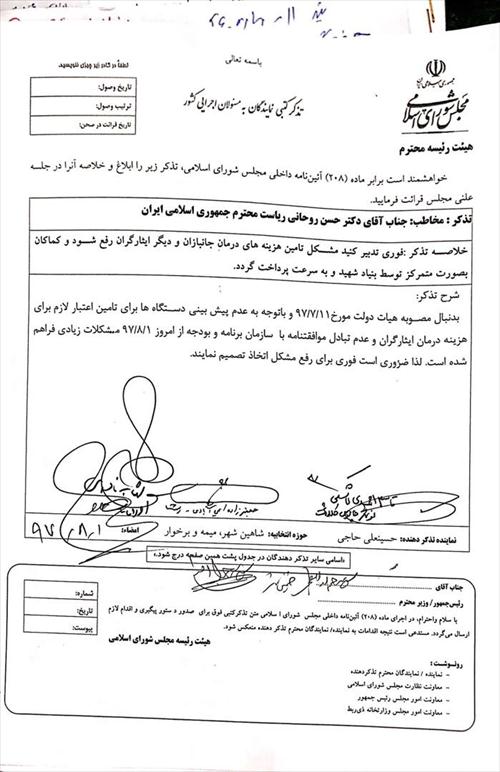 باسمه تعالی
جمهوری اسلامی ایران
مجلس شورای اسلامی
تذکر کتبی نمایندگان به مسئولان اجرایی کشور
لطفاً در کادر زیر چیزی ننویسید.
تاریخ وصول:
ترتیب وصول:
تاریخ قرائت در صحن:
هیئت رئیسه محترم
خواهشمند است برابر ماده (۲۰۸) آئین‌نامه داخلی مجلس شورای اسلامی، تذکر زیر را ابلاغ و خلاصه آنرا در جلسه
علنی مجلس قرائت فرمایید.
تذکر : مخاطب: جناب آقای دکتر حسن روحانی ریاست محترم جمهوری اسلامی ایران
خلاصه تذکر :فوری تدبیر کنید مشکل تامین هزینه های درمان جانبازان و دیگر ایثارگران رفع شود و کماکان
بصورت متمرکز توسط بنیاد شهید و به سرعت پرداخت گردد.
شرح تذکر:
بدنبال مصوبه هیات دولت مورخ۹۷/۷/۱۱ و باتوجه به عدم پیش بینی دستگاه ها برای تامین اعتبار لازم برای
هزینه درمان ایثارگران و عدم تبادل موافقتنامه با سازمان برنامه و بودجه از امروز ۹۷/۸/۱ مشکلات زیادی فراهم
شده است. لذا ضروری است فوری برای رفع مشکل اتخاذ تصمیم نمایند.
نماینده تذکر دهنده: حسینعلی حاجی حوزه انتخابیه: شاهین شهر، میمه و برخوار امضاء: ۹۷،۸،۱
«اسامی سایر تذکر دهندگان در جدول پشت همین صفحه درج شود.»
جناب آقای
رئیس‌جمهور/ وزیر محترم
با سلام واحترام، در اجرای ماده (۲۰۸) آئین‌نامه داخلی مجلس شورای اسلامی متن تذکرکتبی فوق برای صدور دستور پیگیری و اقدام لازم
ارسال می‌گردد. مستدعی است نتیجه اقدامات به نماینده/ نمایندگان محترم تذکر دهنده منعکس شود.
هیئت رئیسه مجلس شورای اسلامی
شماره:
تاریخ:
پیوست:
رونوشت:
- نماینده / نمایندگان محترم تذکردهنده
- معاونت نظارت مجلس شورای اسلامی
- معاونت امور مجلس رئیس جمهور
- معاونت امور مجلس وزارتخانه ذی‌ربط